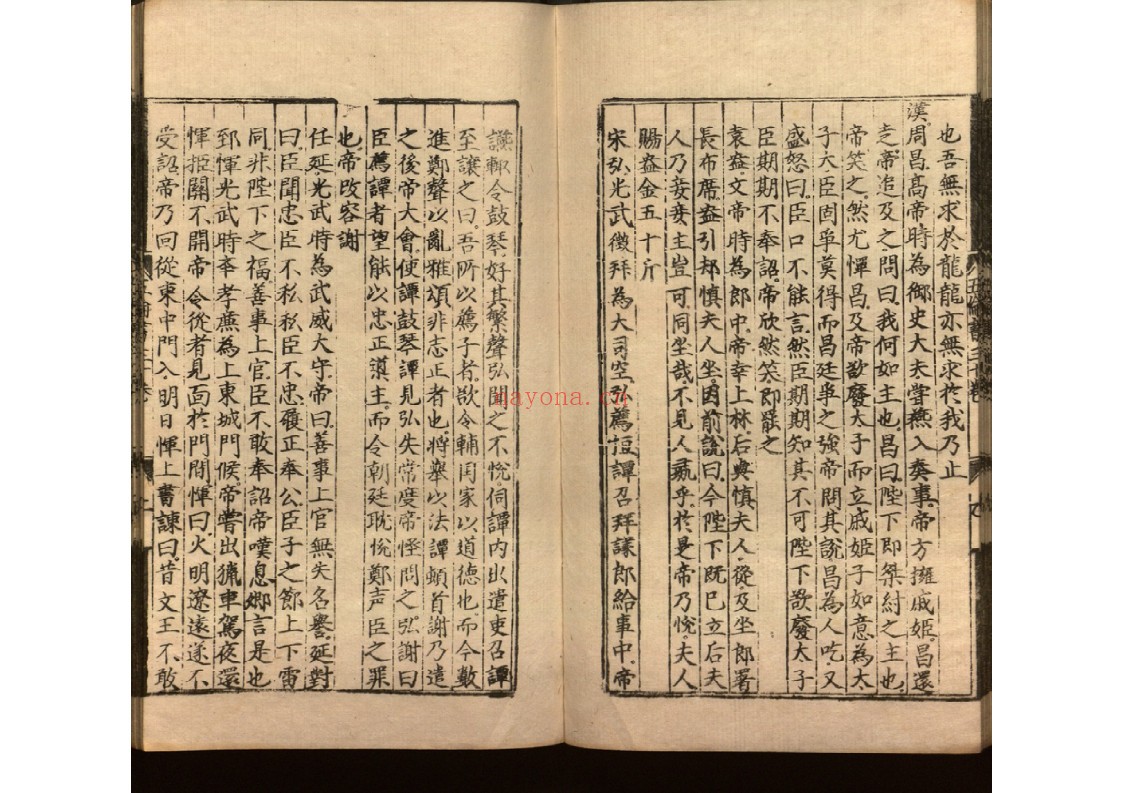 也吾無求於龍龍亦無求於我乃止
漢周昌高帝時為御史大夫嘗燕入奏事帝方擁戚姬昌還
走帝追及之問曰我何如主也昌曰陛下即桀紂之主也
帝笑之然尤憚昌及帝欲廢太子而立戚姬子如意為太
子大臣固爭莫得而昌廷爭之強帝問其說昌為人吃又
盛怒曰臣口不能言然臣期期知其不可陛下欲廢太子
臣期期不奉詔帝欣然笑即罷之
袁盎文帝時為郎中帝幸上林后與慎夫人從及坐郎署
長布席盎引却慎夫人坐因前說曰今陛下既已立后夫
人乃妾妾主豈可同坐哉不見人彘乎於是帝乃悅夫人
賜盎金五十斤
宋弘光武徵拜為大司空弘薦桓譚召拜議郎給事中帝
讌輙令鼓琴好其繁聲弘聞之不悅伺譚內出遣吏召譚
至讓之曰吾所以薦子者欲令輔国家以道德也而今數
進鄭聲以亂雅頌非忠正者也將舉以法譚頓首謝乃遣
之後帝大會使譚鼓琴譚見弘失常度帝怪問之弘謝曰
臣薦譚者望能以忠正導主而令朝廷耽悅鄭声臣之罪
也帝改容謝
任延光武時為武威太守帝曰善事上官無失名譽延對
曰臣聞忠臣不私私臣不忠履正奉公臣子之節上下雷
同非陛下之福善事上官臣不敢奉詔帝嘆息鄉言是也
郅惲光武時本孝廉為上東城門候帝嘗出獵車駕夜還
惲拒關不開帝令從者見面於門間惲曰火明遼遠遂不
受詔帝乃回從東中門入明日惲上書諫曰昔文王不敢
nayona.cn